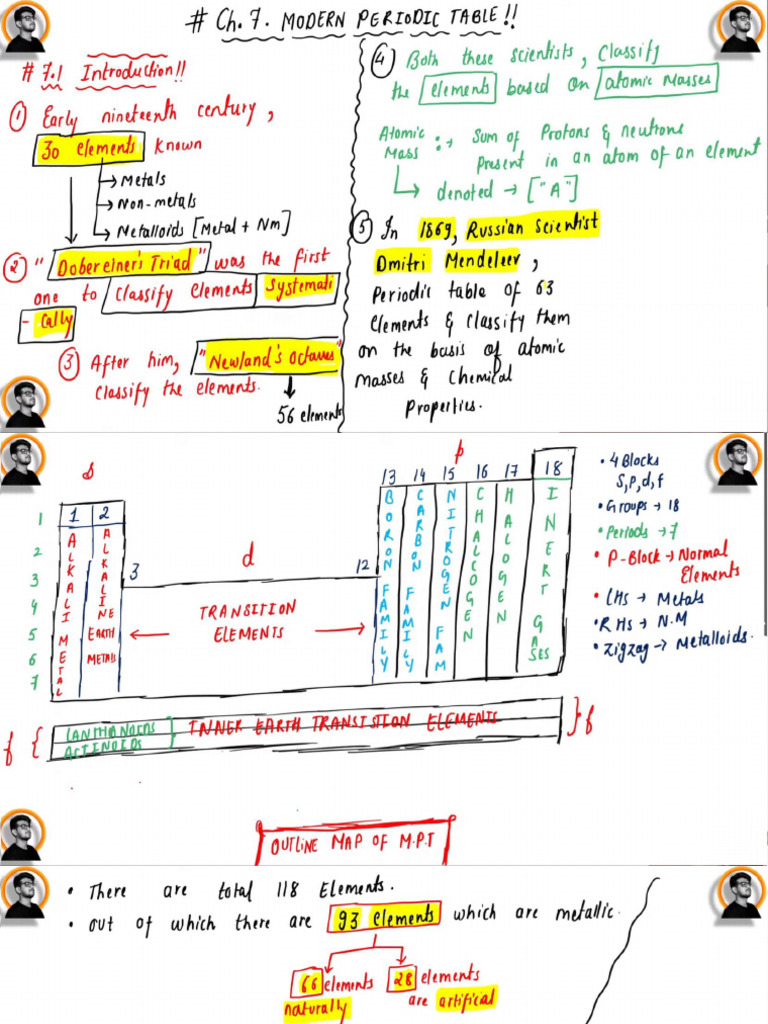 # Ch. 7. MODERN PERIODIC TABLE !!
# 7.1 Introduction !!
① Early nineteenth century,
30 elements known
→ Metals
→ Non-metals
→ Metalloids [Metal + Nm]
② "Dobereiner's Triad" was the first
one to classify elements systemati
- cally
③ After him, "Newland's Octaves"
classify the elements.
56 elements
④ Both these scientists, classify
the elements based on atomic masses
Atomic Mass :→ Sum of Protons & neutrons
Present in an atom of an element
denoted → ["A"]
⑤ In 1869, Russian Scientist
Dmitri Mendeleev,
Periodic table of 63
elements & classify them
on the basis of atomic
masses & chemical
Properties.
s
p
13 14 15 16 17 18
1 2
1
2
3
4
5
6
7
ALKALI METAL
ALKALINE EARTH METALS
3
d
12
TRANSITION
ELEMENTS
BORON FAMILY
CARBON FAMILY
NITROGEN FAM
CHALCOGEN
HALOGEN
INERT GASES
• 4 Blocks
S, P, d, f
• Groups → 18
• Periods → 7
• P-Block → Normal
Elements
• LHs → Metals
• RHs → N.M
• Zigzag → Metalloids.
f { LANTHANOIDS } INNER EARTH TRANSISTION ELEMENTS } f
ACTINOIDS
OUTLINE MAP OF M.P.T
• There are total 118 Elements.
• out of which there are 93 elements which are metallic.
66 elements
naturally
28 elements
are artificial